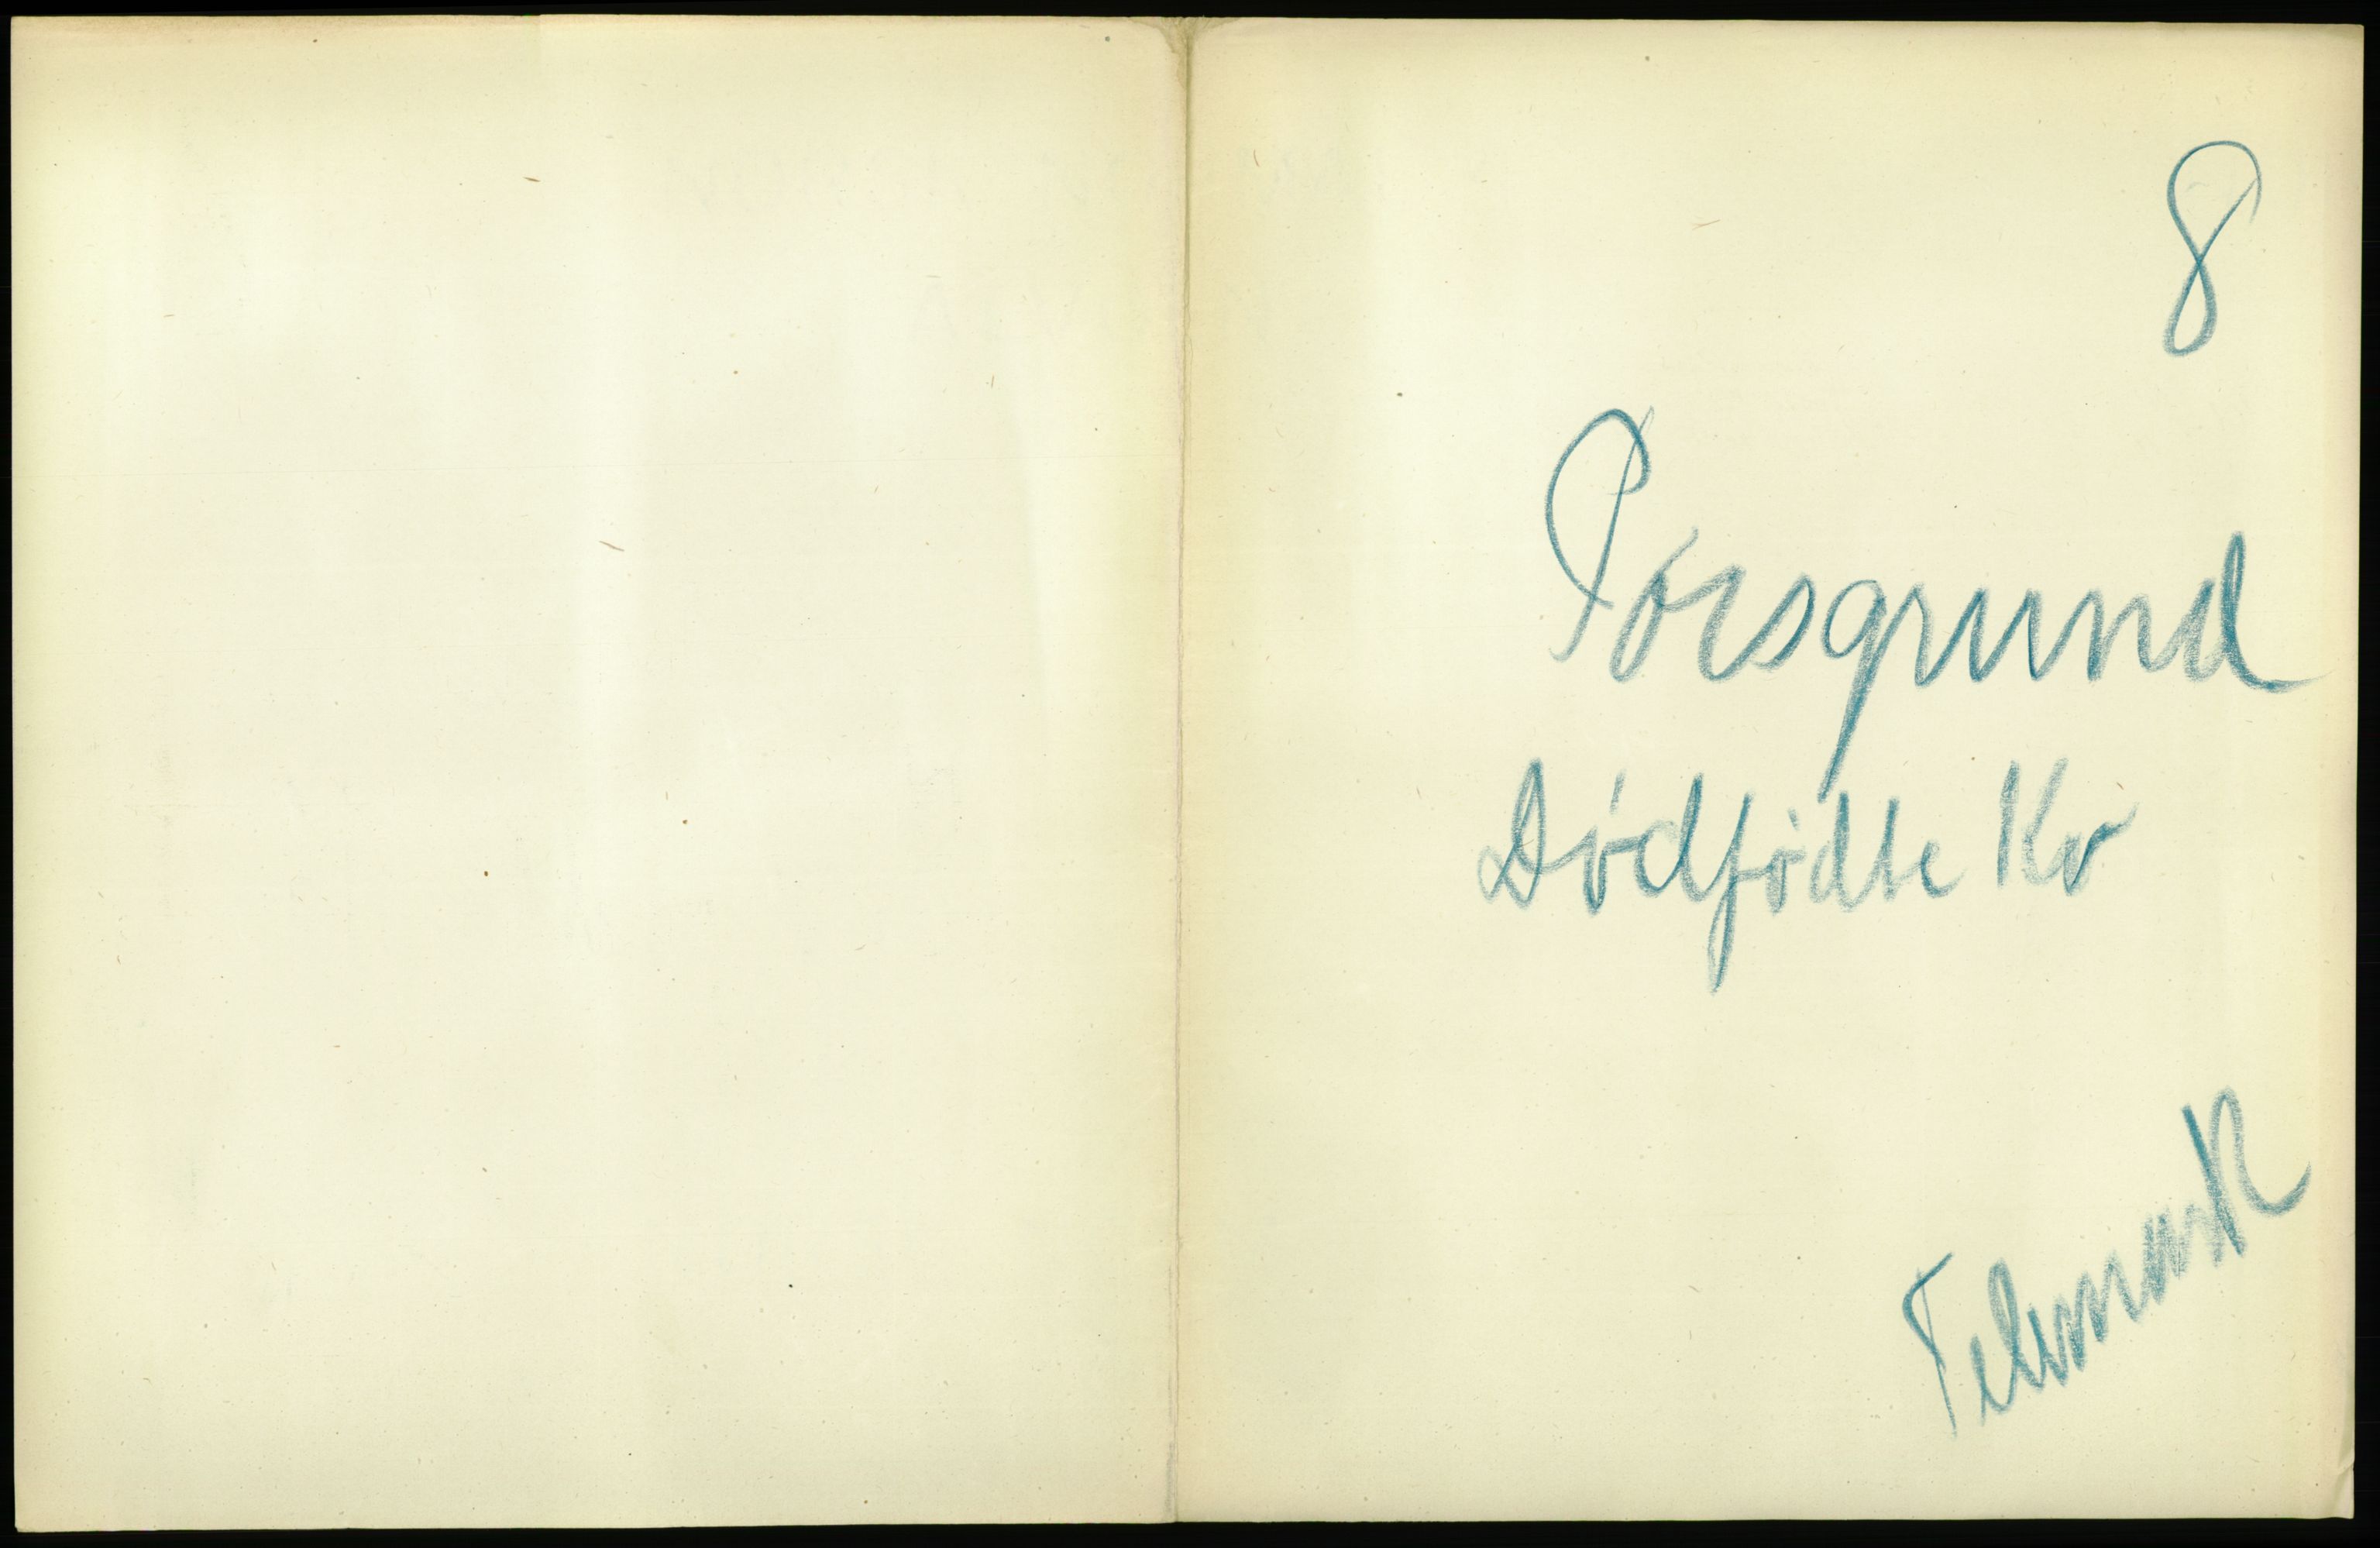 8
Porsgrund
Dødfødte Kv
Telemark